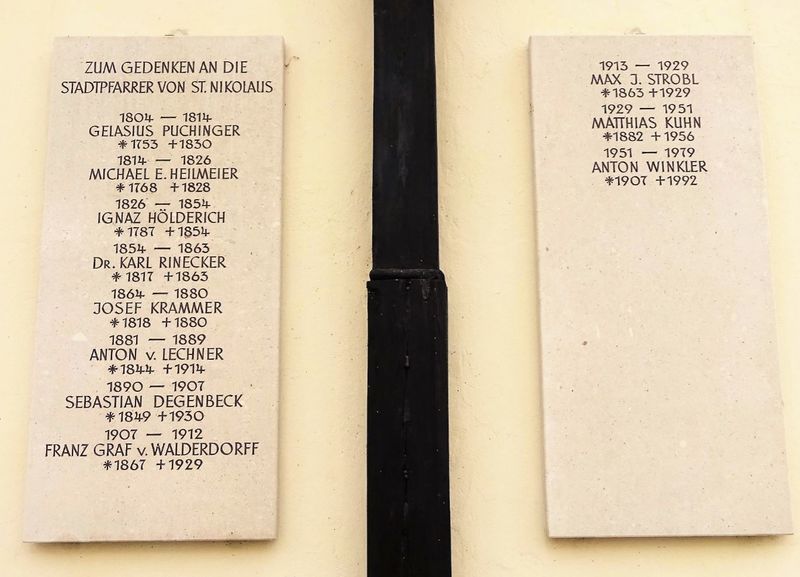 ZUM GEDENKEN AN DIE
STADTPFARRER VON ST. NIKOLAUS
1804 — 1814
GELASIUS PUCHINGER
*1753 +1830
1814 — 1826
MICHAEL E. HEILMEIER
*1768 +1828
1826 — 1854
IGNAZ HÖLDERICH
*1787 +1854
1854 — 1863
DR. KARL RINECKER
*1817 +1863
1864 — 1880
JOSEF KRAMMER
*1818 +1880
1881 — 1889
ANTON v. LECHNER
*1844 +1914
1890 — 1907
SEBASTIAN DEGENBECK
*1849 +1930
1907 — 1912
FRANZ GRAF v. WALDERDORFF
*1867 +1929
1913 — 1929
MAX J. STROBL
*1863 +1929
1929 — 1951
MATTHIAS KUHN
*1882 +1956
1951 — 1979
ANTON WINKLER
*1907 +1992